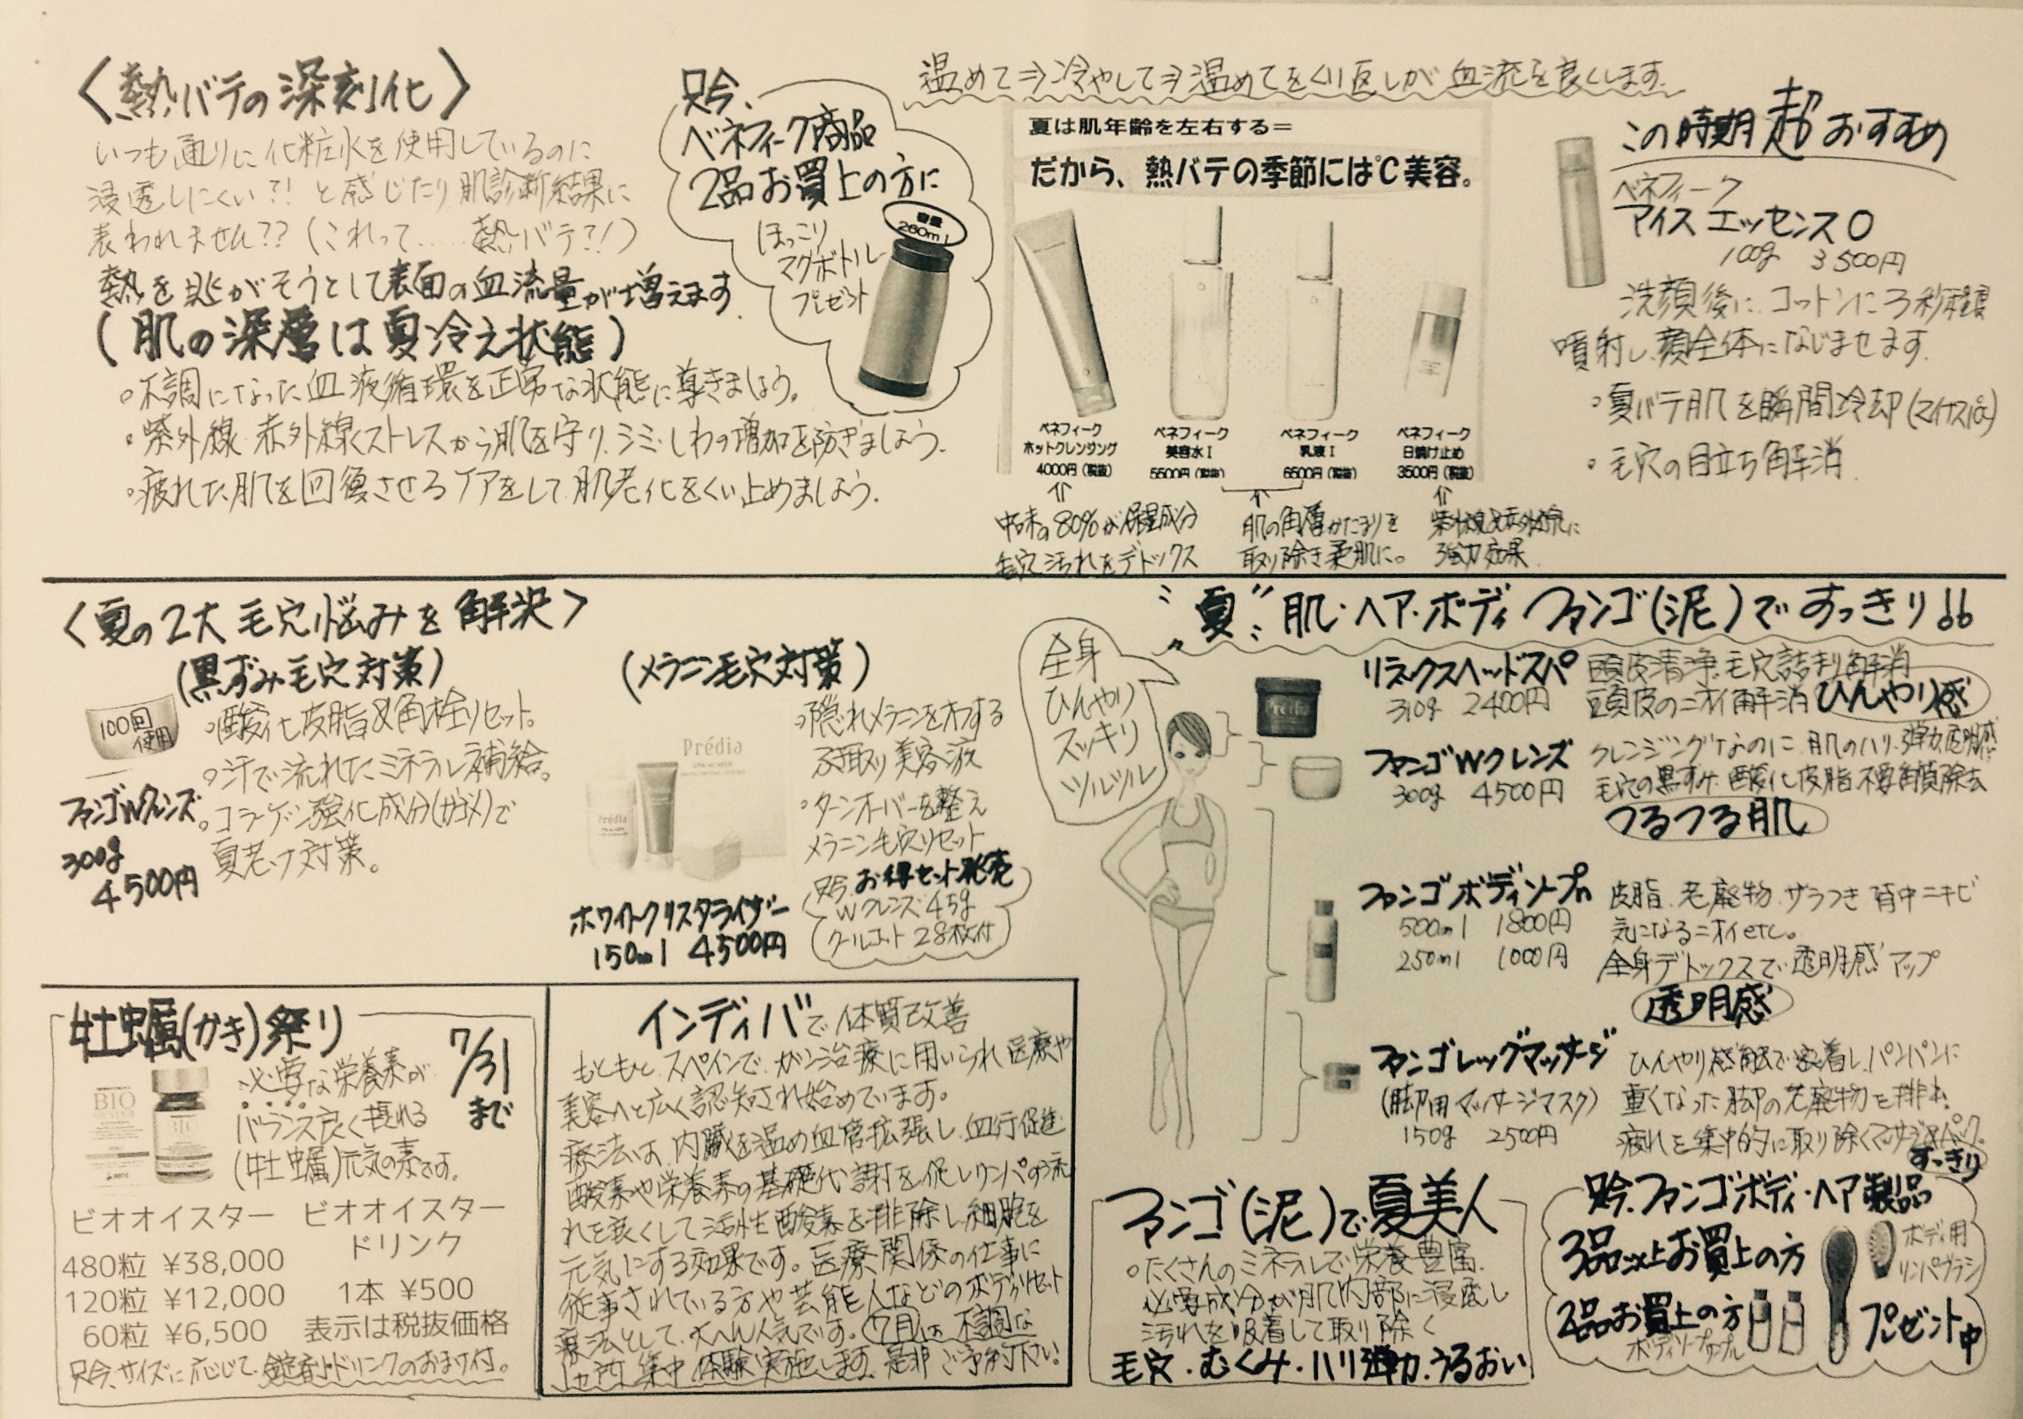 〈熱バテの深刻化〉
いつも通りに化粧水を使用しているのに
浸透しにくい?! と感じたり肌診断結果に
表われません?? (これって......熱バテ?!)
熱を逃がそうとして表面の血流量が増えます
(肌の深層は夏冷え状態)
・不調になった血液循環を正常な状態に導きましょう。
・紫外線・赤外線くストレスから肌を守り、シミ・しわの増加を防ぎましょう。
・疲れた肌を回復させるケアをして肌老化をくい止めましょう。
只今、
ベネフィーク商品
2品お買上の方に
容量
260ml
ほっこり
マグボトル
プレゼント
温めて⇒冷やして⇒温めてをくり返しが血流を良くします。
夏は肌年齢を左右する=
だから、熱バテの季節には℃美容。
ベネフィーク
ホットクレンジング
4000円(税抜)
ベネフィーク
美容水Ⅰ
5500円(税抜)
ベネフィーク
乳液Ⅰ
6500円(税抜)
ベネフィーク
日焼け止め
3500円(税抜)
中味の80%が保湿成分
毛穴汚れをデトックス
肌の角層かたまりを
取り除き柔肌に。
紫外線&赤外線に
強力効果
この時期 超おすすめ
ベネフィーク
アイス エッセンスO
100g 3500円
洗顔後に、コットンに3秒程度
噴射し、顔全体になじませます。
・夏バテ肌を瞬間冷却
・毛穴の目立ち解消
〈夏の2大毛穴悩みを解決〉
(黒ずみ毛穴対策)
100回
使用
・酸化皮脂&角栓リセット。
・汗で流れたミネラル補給。
・コラーゲン強化成分で
夏老け対策。
ファンゴWクレンズ
300g
4500円
(メラニン毛穴対策)
Prédia
・隠れメラニンをオフする
ふき取り美容液
・ターンオーバーを整え
メラニン毛穴リセット
只今、お得セット発売
Wクレンズ45g
クールコット 28枚付
ホワイトクリスタライザー
150ml 4500円
"夏" 肌・ヘア・ボディ ファンゴ(泥)ですっきり!!
全身
ひんやり
スッキリ
ツルツル
Prédia
リラックスヘッドスパ
310g 2400円
頭皮清浄、毛穴詰まり解消
頭皮のニオイ解消 ひんやり感
ファンゴWクレンズ
300g 4500円
クレンジングなのに、肌のハリ、弾力、透明感
毛穴の黒ずみ、酸化皮脂、不要角質除去
つるつる肌
ファンゴボディソープn
500ml 1800円
250ml 1000円
皮脂、老廃物、ザラつき、背中ニキビ
気になるニオイetc。
全身デトックスで透明感アップ
透明感
ファンゴレッグマッサージ
(脚用マッサージマスク)
150g 2500円
ひんやり感触で密着し、パンパンに
重くなった脚の老廃物を排出、
疲れを集中的に取り除くマッサージ&パック。
すっきり
牡蠣(かき)祭り
7/31
まで
BIO
必要な栄養素が
バランス良く摂れる
(牡蠣)元気の素です。
ビオオイスター
480粒 ¥38,000
120粒 ¥12,000
60粒 ¥6,500
ビオオイスター
ドリンク
1本 ¥500
表示は税抜価格
只今、サイズに応じて、錠剤・ドリンクのおまけ付。
インディバで体質改善
もともと、スペインで、ガン治療に用いられ医療や
美容へと広く認知され始めています。
療法は、内臓を温め血管拡張し、血行促進
酸素や栄養素の基礎代謝を促しリンパの流
れを良くして活性酸素を排除し、細胞を
元気にする効果です。医療関係の仕事に
従事されている方や芸能人などのボディリセット
療法として、大へん人気です。7月は、不調な
1ヵ所、集中体験実施します。是非ご予約下さい。
ファンゴ(泥)で夏美人
・たくさんのミネラルで栄養豊富、
必要成分が肌内部に浸透し
汚れを吸着して取り除く
毛穴・むくみ・ハリ弾力・うるおい
只今、ファンゴボディ・ヘア製品
3品以上お買上の方
ボディ用
リンパブラシ
2品お買上の方
ボディソープサンプル
プレゼント中